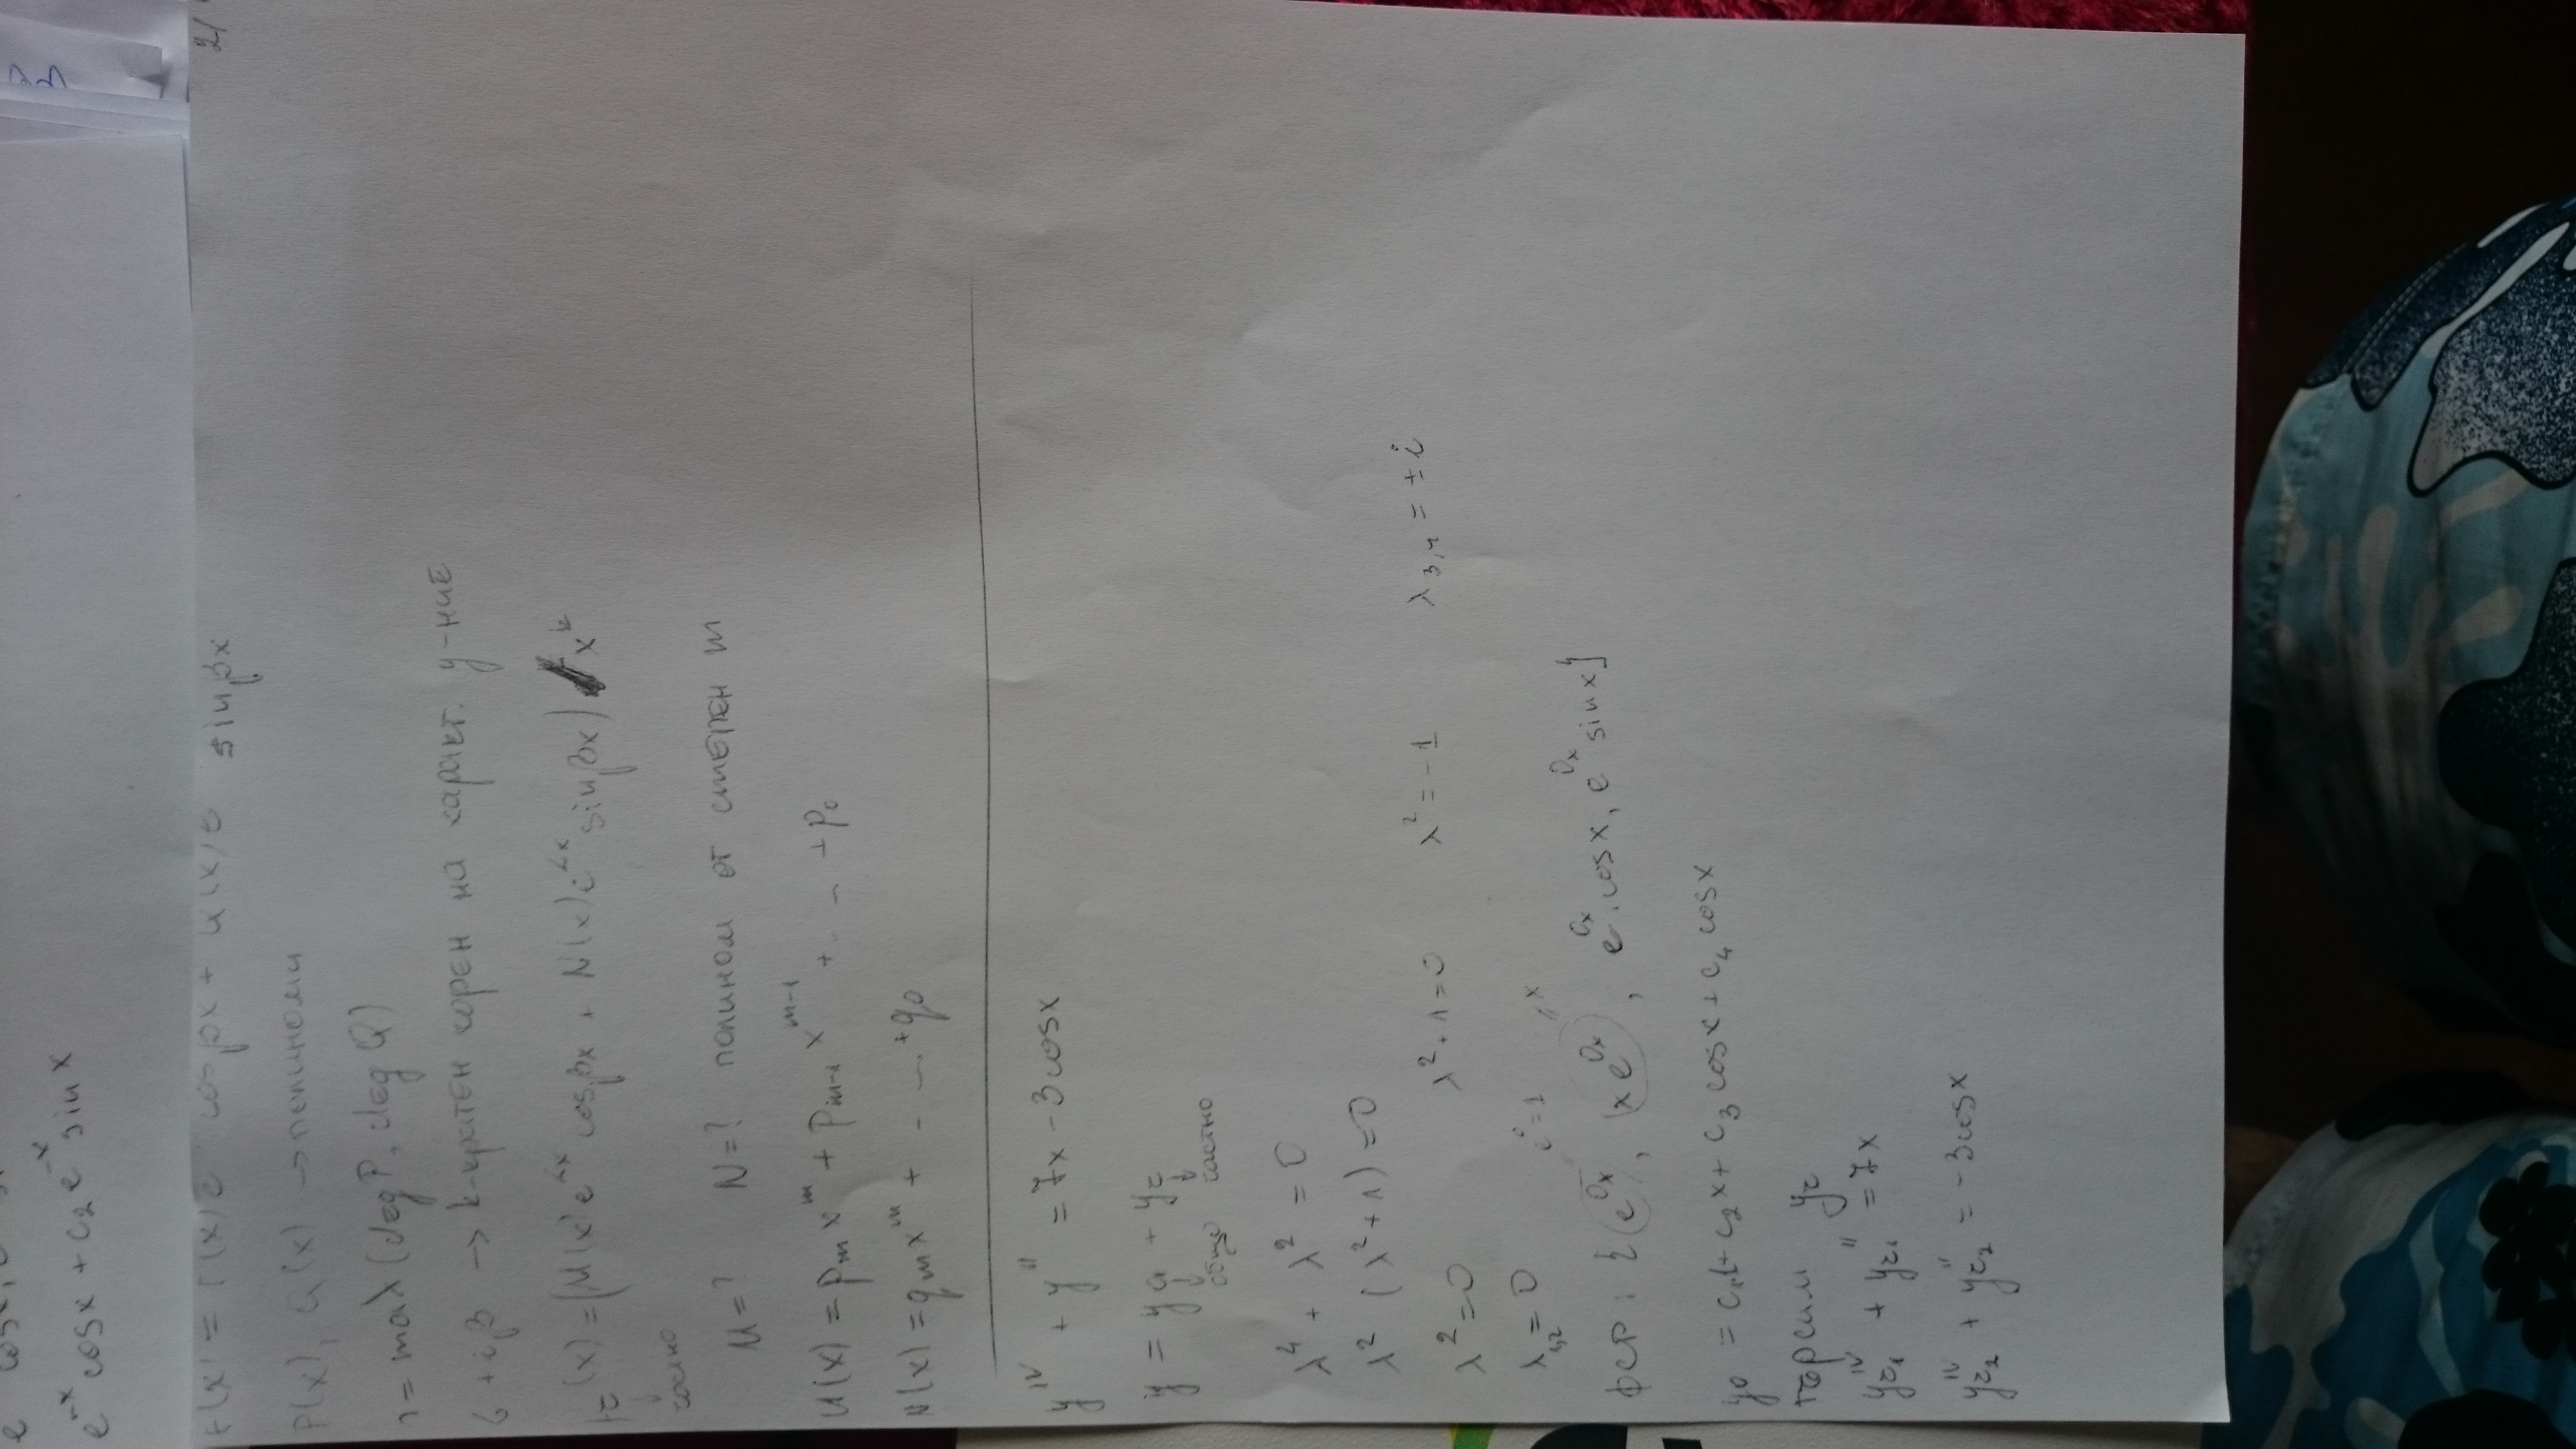 e^{-x} cosx + c₂ e^{-x} sin x
2/
f(x) = P(x) e cos βx + Q(x) e sin βx
P(x), Q(x) → полиноми
m = max (deg P, deg Q)
α + iβ → k-кратен корен на характ. у-ние
(x) = (M(x) e^{αx} cos βx + N(x) e^{αx} sin βx) x^k
частно
M = ? N = ? полином от степен m
M(x) = p_m x^m + p_{m-1} x^{m-1} + - - + p₀
N(x) = q_m x^m + - - - + q₀
y^{IV} + y'' = 7x - 3cosx
y = y₀ + y_r
общо частно
λ⁴ + λ² = 0
λ² (λ² + 1) = 0
λ² = 0 λ² + 1 = 0 λ² = -1 λ_{3,4} = ± i
λ_{1,2} = 0 e⁰ = 1 " x
ФСР : { e^{0x}, x e^{0x}, e^{0x}. cosx, e^{0x} sin x }
y₀ = c₁.1 + c₂ x + c₃ cosx + c₄ cosx
търсим y_r
y_{r1}^{IV} + y_{r1}'' = 7x
y_{r2}^{IV} + y_{r2}'' = -3cosx